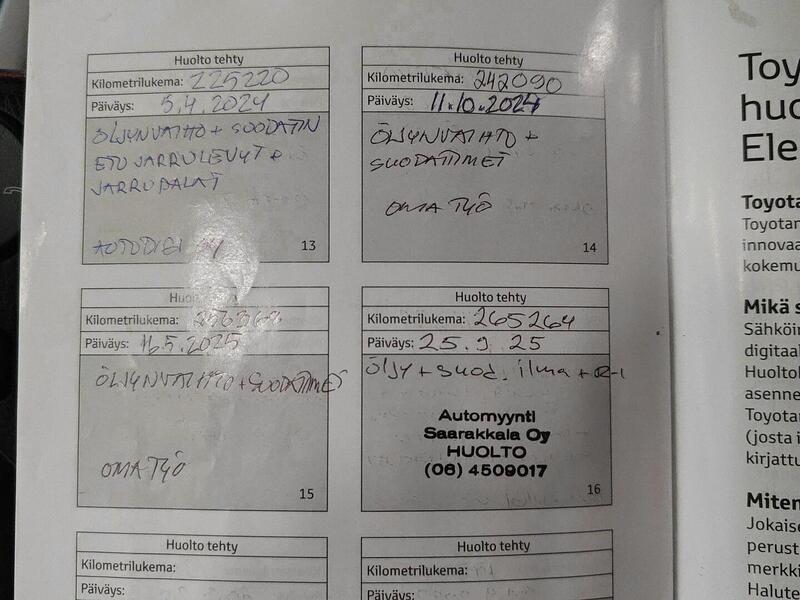 Huolto tehty
Kilometrilukema: 225220
Päiväys: 5.4.2024
ÖLJYNVAIHTO + SUODATIN
ETU JARRULEVYT &
JARRUPALAT
13
Huolto tehty
Kilometrilukema: 242090
Päiväys: 11.10.2024
ÖLJYNVAIHTO +
SUODATTIMET
OMA TYÖ
14
Huolto tehty
Kilometrilukema:
Päiväys: 16.5.2025
ÖLJYNVAIHTO + SUODATTIMET
OMA TYÖ
15
Huolto tehty
Kilometrilukema: 265264
Päiväys: 25.9 25
Öljy + suod. ilma +
Automyynti
Saarakkala Oy
HUOLTO
(06) 4509017
16
Huolto tehty
Kilometrilukema:
Päiväys:
Huolto tehty
Kilometrilukema:
Päiväys:
Toy
huo
Ele
Toyota
Toyotan
innovaa
kokemu
Mikä s
Sähköin
digitaal
Huoltok
asenne
Toyotan
(josta i
kirjattu
Miten
Jokaise
perust
merkki
Halute